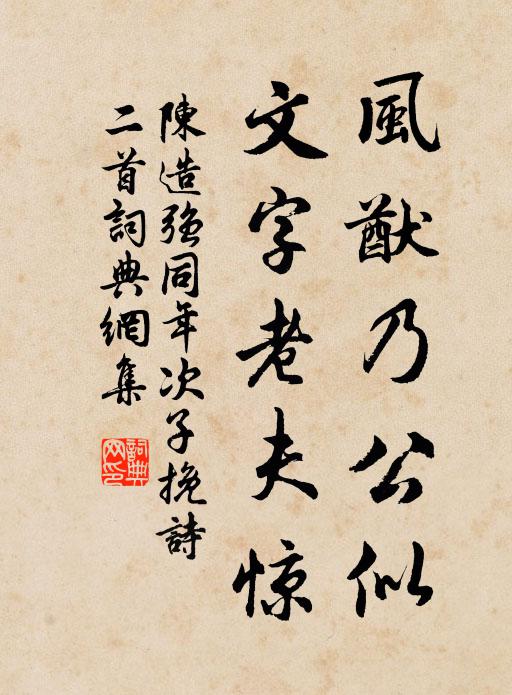 風猷乃公似
文字老夫惊
陳造強同年次子挽詩
二首詞典網集
詞典网印